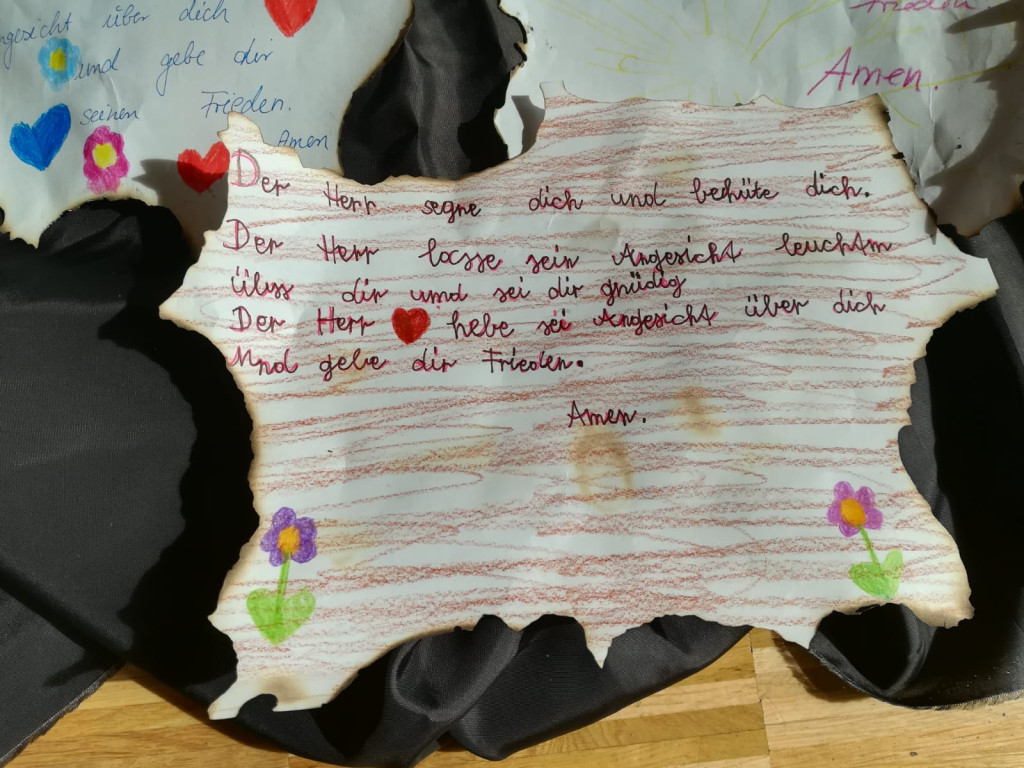 Angesicht über dich
und gebe dir
seinen Frieden.
Amen
Frieden
Amen.
Der Herr segne dich und behüte dich.
Der Herr lasse sein Angesicht leuchtm
über dir und sei dir gnädig
Der Herr hebe sei Angesicht über dich
Und gebe dir Frieden.
Amen.